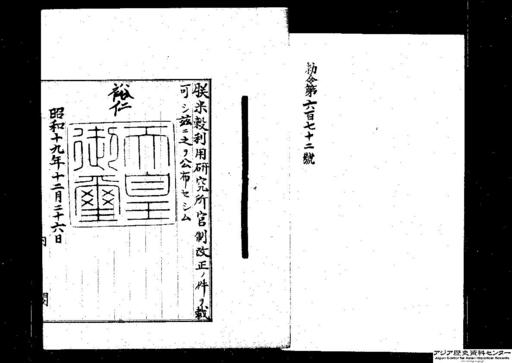 勅令第六百七十二號
朕米穀利用研究所官制改正ノ件ヲ裁
可シ茲ニ之ヲ公布セシム
裕仁
天皇
御璽
昭和十九年十二月二十六日
内
閣
アジア歴史資料センター
Japan Center for Asian Historical Records